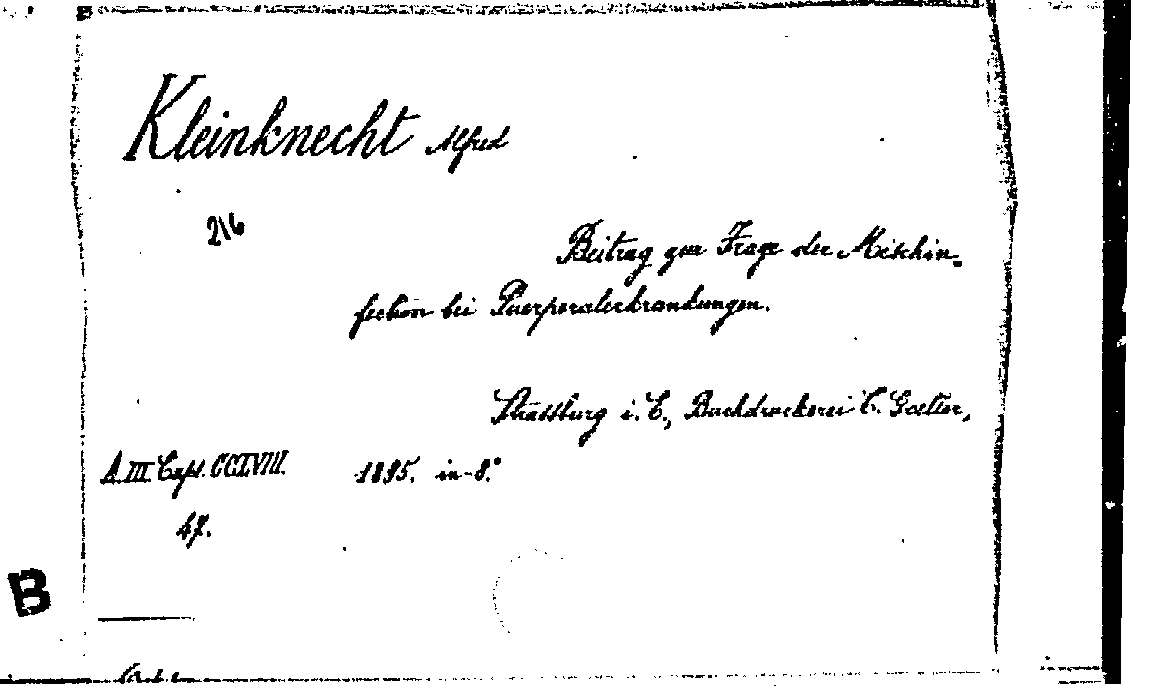 Kleinknecht Alfred
216
Beitrag zur Frage der Mischin-
fection bei Puerperalerkrankungen.
Strassburg i. E., Buchdruckerei C. Goeller,
A. III. Caps. CCLVIII. 1895. in-8.°
47.
B